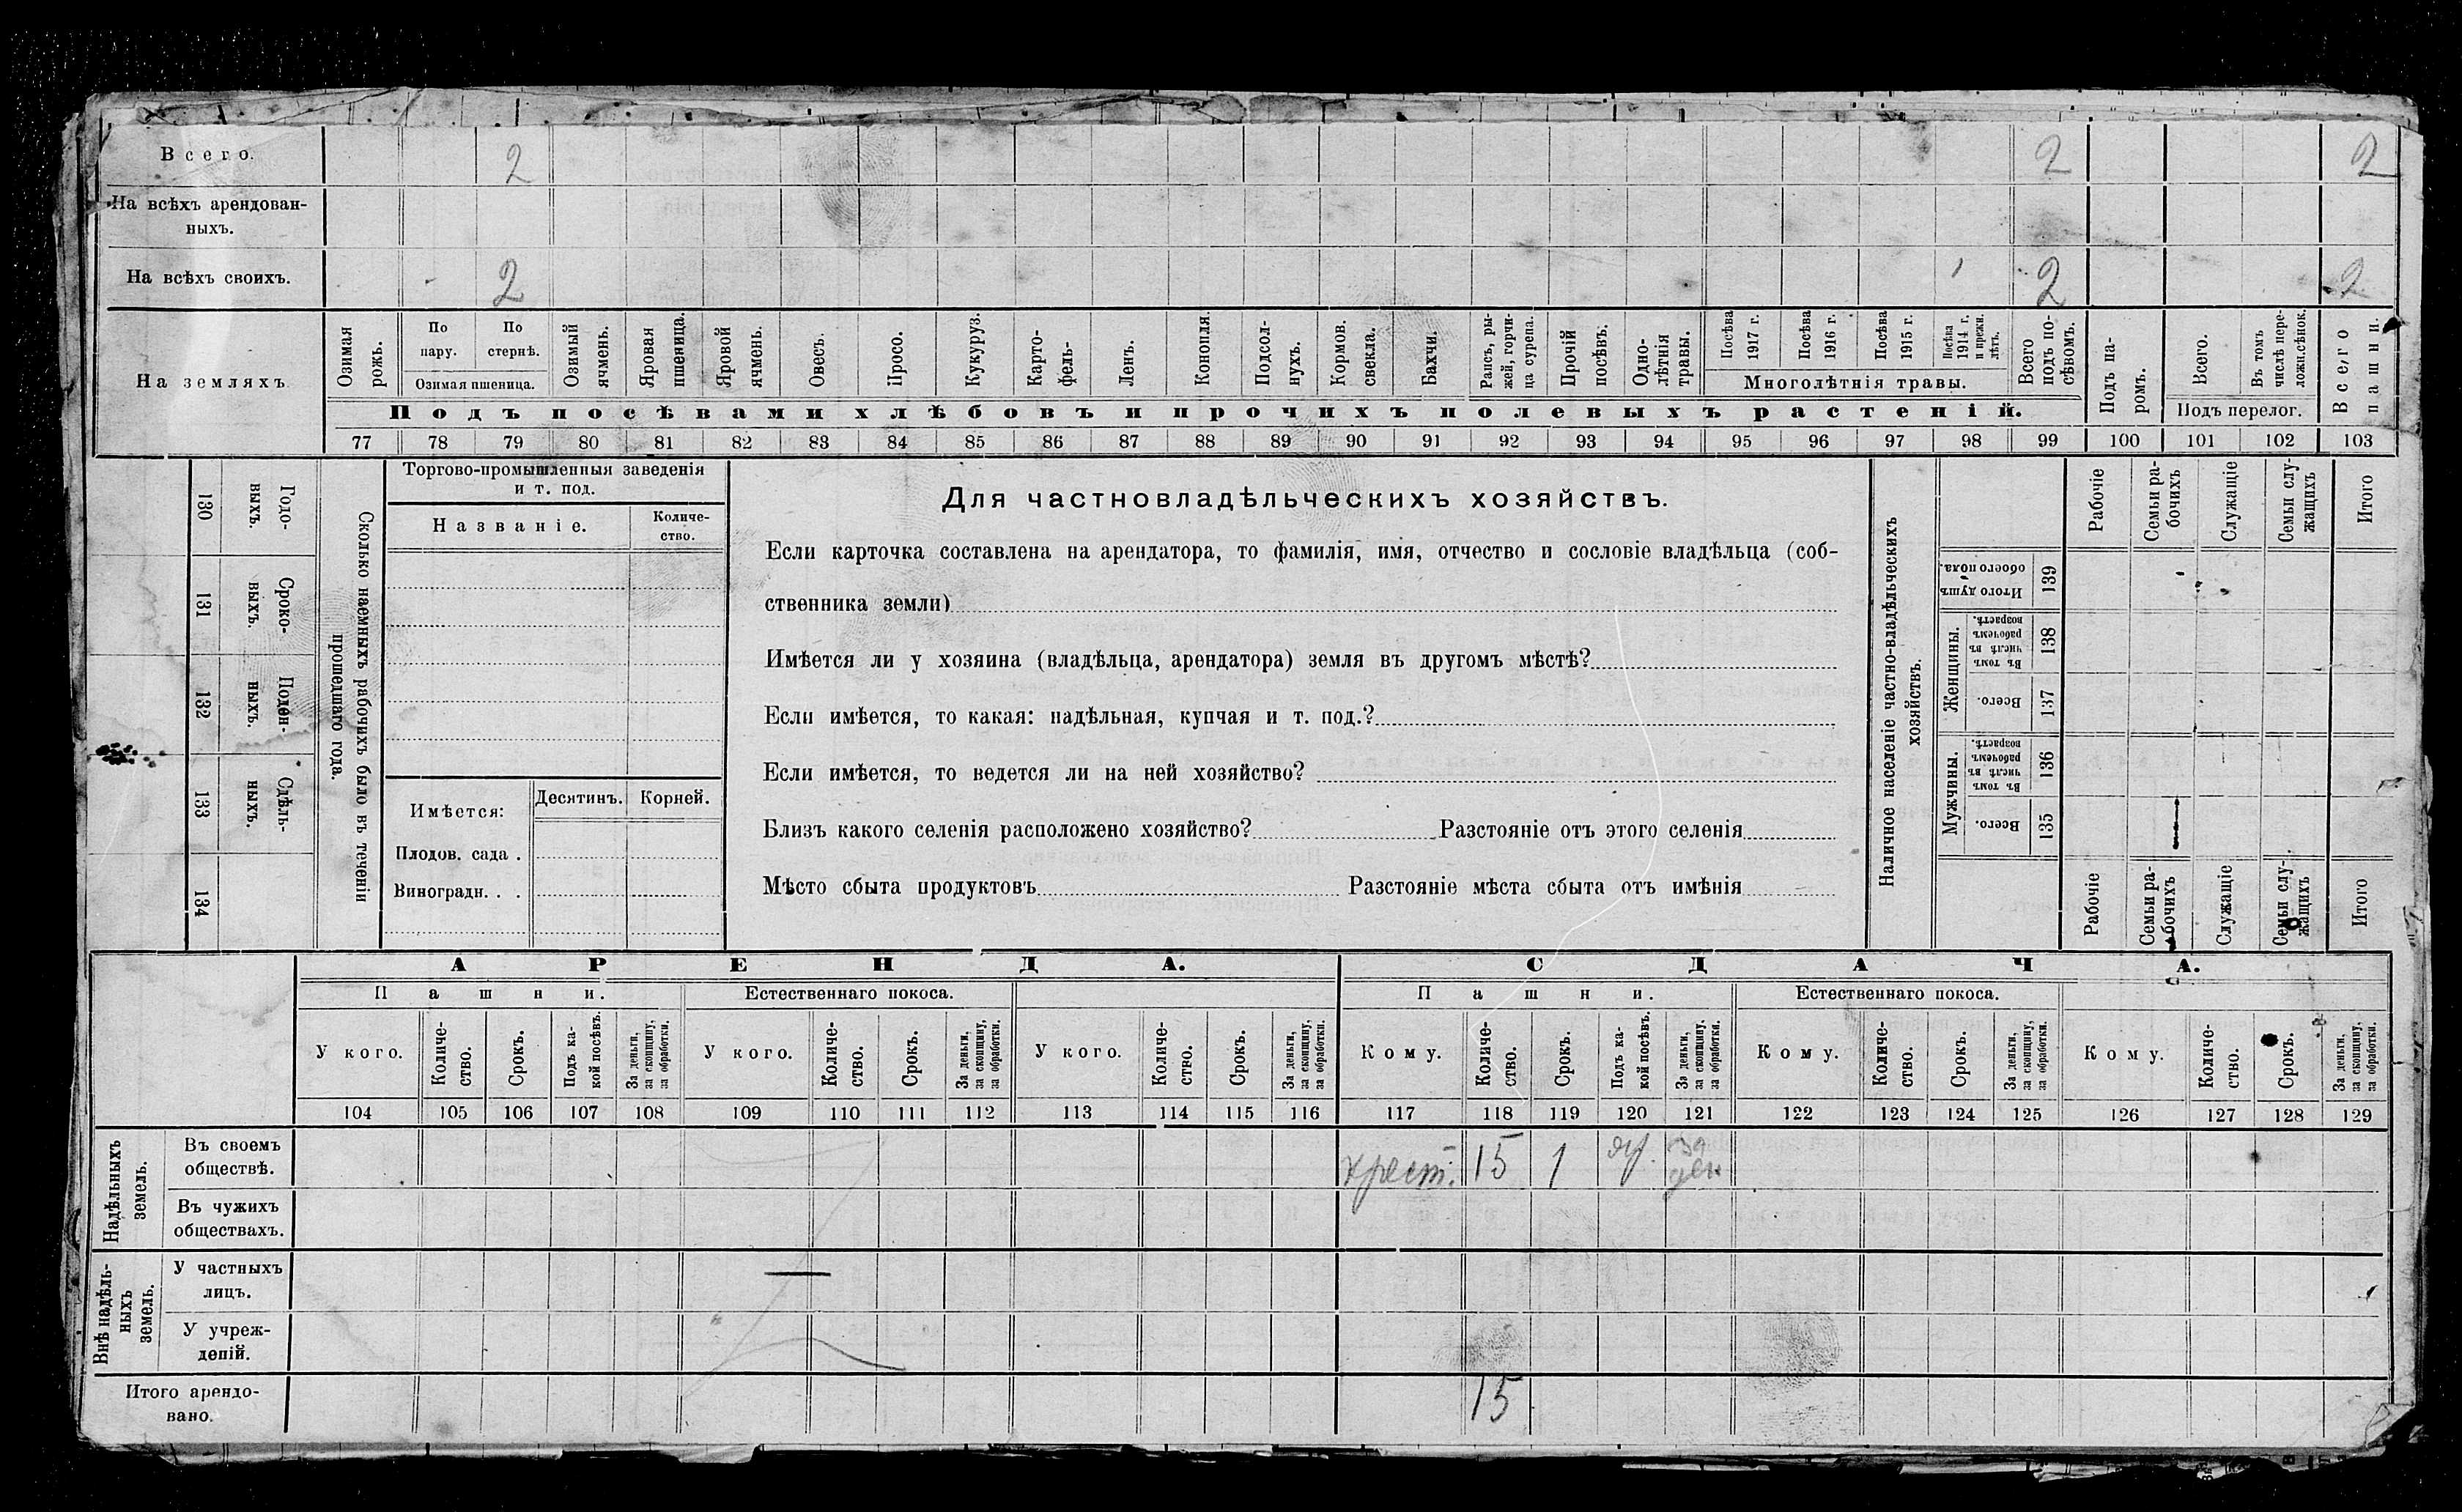 Всего. 2 2 2
На всѣхъ арендован-
ныхъ.
На всѣхъ своихъ. 2 2 2
На земляхъ
Озимая
рожь.
По
пару.
По
стернѣ.
Озимая пшеница.
Озимый
ячмень.
Яровая
пшеница.
Яровой
ячмень.
Овесъ.
Просо.
Кукуруз.
Карто-
фель-
Ленъ.
Конопля.
Подсол-
нухъ.
Кормов.
свекла.
Бахчи.
Рапсъ, ры-
жей, горчи-
ца сурепа.
Прочій
посѣвъ.
Одно-
лѣтнія
травы.
Посѣва
1917 г.
Посѣва
1916 г.
Посѣва
1915 г.
Посѣва
1914 г.
и прежн.
лѣтъ.
Многолѣтнія травы.
Всего
подъ по-
сѣвомъ.
Подъ па-
ромъ.
Всего.
Въ томъ
числѣ пере-
ложн.сѣнок.
Подъ перелог.
Всего
пашни.
Подъ посѣвами хлѣбовъ и прочихъ полевыхъ растеній.
77 78 79 80 81 82 83 84 85 86 87 88 89 90 91 92 93 94 95 96 97 98 99 100 101 102 103
130
Годо-
выхъ.
131
Сроко-
ныхъ.
132
Поден-
ныхъ.
133
Сдѣль-
ныхъ.
134
Сколько наемныхъ рабочихъ было въ теченіи
прошедшаго года.
Торгово-промышленныя заведенія
и т. под.
Названіе.
Количе-
ство.
Имѣется:
Десятинъ.
Корней.
Плодов. сада .
Виноградн. . .
Для частновладѣльческихъ хозяйствъ.
Если карточка составлена на арендатора, то фамилія, имя, отчество и сословіе владѣльца (соб-
ственника земли)
Имѣется ли у хозяина (владѣльца, арендатора) земля въ другомъ мѣстѣ?
Если имѣется, то какая: надѣльная, купчая и т. под.?
Если имѣется, то ведется ли на ней хозяйство?
Близъ какого селенія расположено хозяйство? Разстояніе отъ этого селенія
Мѣсто сбыта продуктовъ Разстояніе мѣста сбыта отъ имѣнія
Наличное населеніе частно-владѣльческихъ
хозяйствъ.
Рабочіе
Семьи ра-
бочихъ
Служащіе
Семьи слу-
жащихъ
Итого
Итого душъ
обоего пола.
139
Женщины.
Въ томъ
числѣ въ
рабочемъ
возрастѣ.
138
Всего.
137
Мужчины.
Въ томъ
числѣ въ
рабочемъ
возрастѣ.
136
Всего.
135
Рабочіе
Семьи ра-
бочихъ
Служащіе
Семьи слу-
жащихъ
Итого
АРЕНДА.
СДАЧА.
Пашни.
Естественнаго покоса.
Пашни.
Естественнаго покоса.
У кого.
Количе-
ство.
Срокъ.
Подъ ка-
кой посѣвъ.
За деньги,
за скопщину,
за обработки.
У кого.
Количе-
ство.
Срокъ.
За деньги,
за скопщину,
за обработки.
У кого.
Количе-
ство.
Срокъ.
За деньги,
за скопщину,
за обработки.
Кому.
Количе-
ство.
Срокъ.
Подъ ка-
кой посѣвъ.
За деньги,
за скопщину,
за обработки.
Кому.
Количе-
ство.
Срокъ.
За деньги,
за скопщину,
за обработки.
Кому.
Количе-
ство.
Срокъ.
За деньги,
за скопщину,
за обработки.
104 105 106 107 108 109 110 111 112 113 114 115 116 117 118 119 120 121 122 123 124 125 126 127 128 129
Надѣльныхъ
земель.
Въ своемъ
обществѣ.
крест. 15 1 за
ден
Въ чужихъ
обществахъ.
Внѣ надѣль-
ныхъ
земель.
У частныхъ
лицъ.
У учреж-
деній.
Итого арендо-
вано.
15